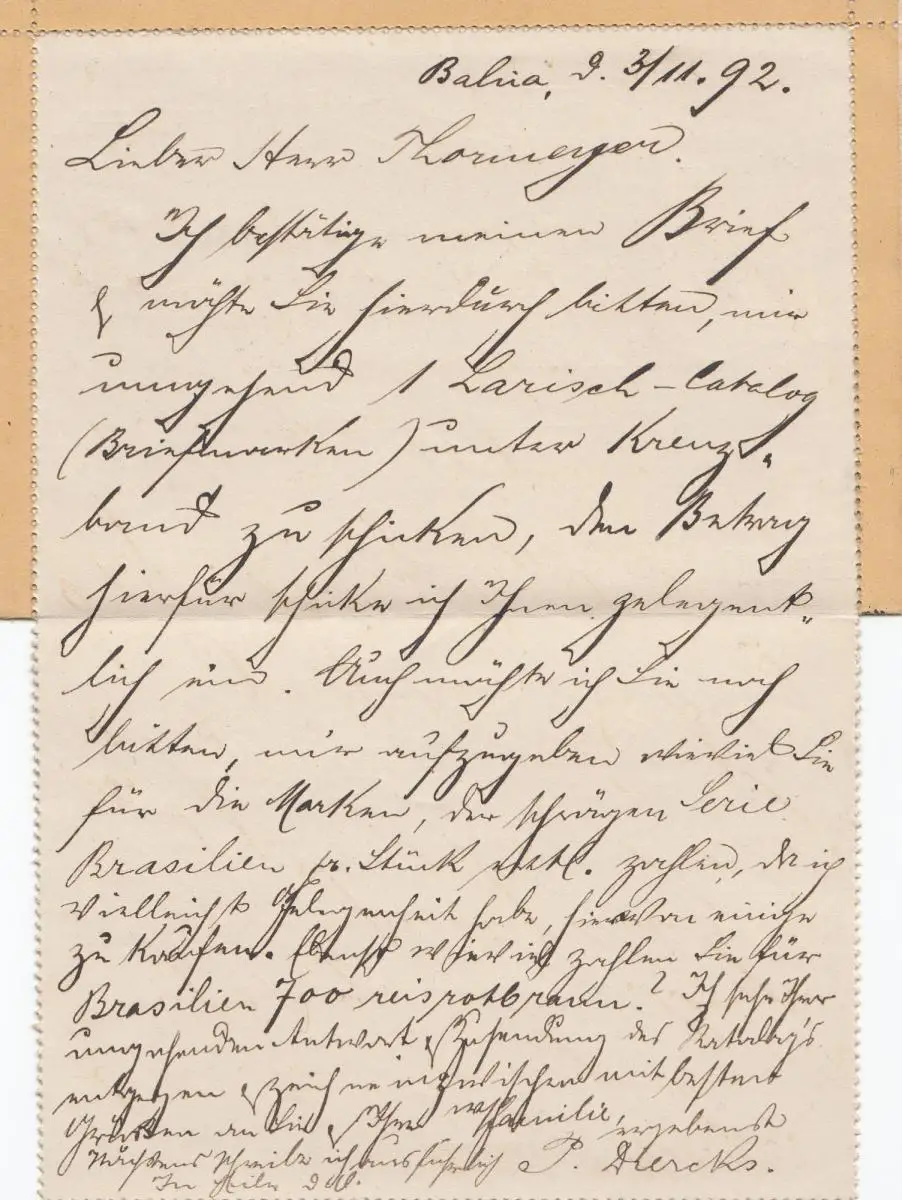 Bahia, d. 3/11. 92.
Lieber Herr Thormeyer.
Ich bestätige meinen Brief
& möchte Sie hierdurch bitten, mir
umgehend 1 Larisch-Catalog
(Briefmarken) unter Kreuz„
band zu schicken, den Betrag
hierfür schicke ich Ihnen gelegent„
lich ein. Auch möchte ich Sie noch
bitten, mir aufzugeben wieviel Sie
für die Marken, der schrägen Serie
Brasilien pr. Stück zahlen, da ich
vielleicht Gelegenheit habe, hiervon einige
zu kaufen. Ebenso wieviel zahlen Sie für
Brasilien 700 reis rotbraun? Ich sehe Ihrer
umgehenden Antwort & Zusendung des Katalogs
entgegen & zeichne inzwischen mit besten
Grüssen an Sie & Ihre Familie,
ergebenst
Nächstens schreibe ich ausführlich P. Diercks.
In Eile d. O.